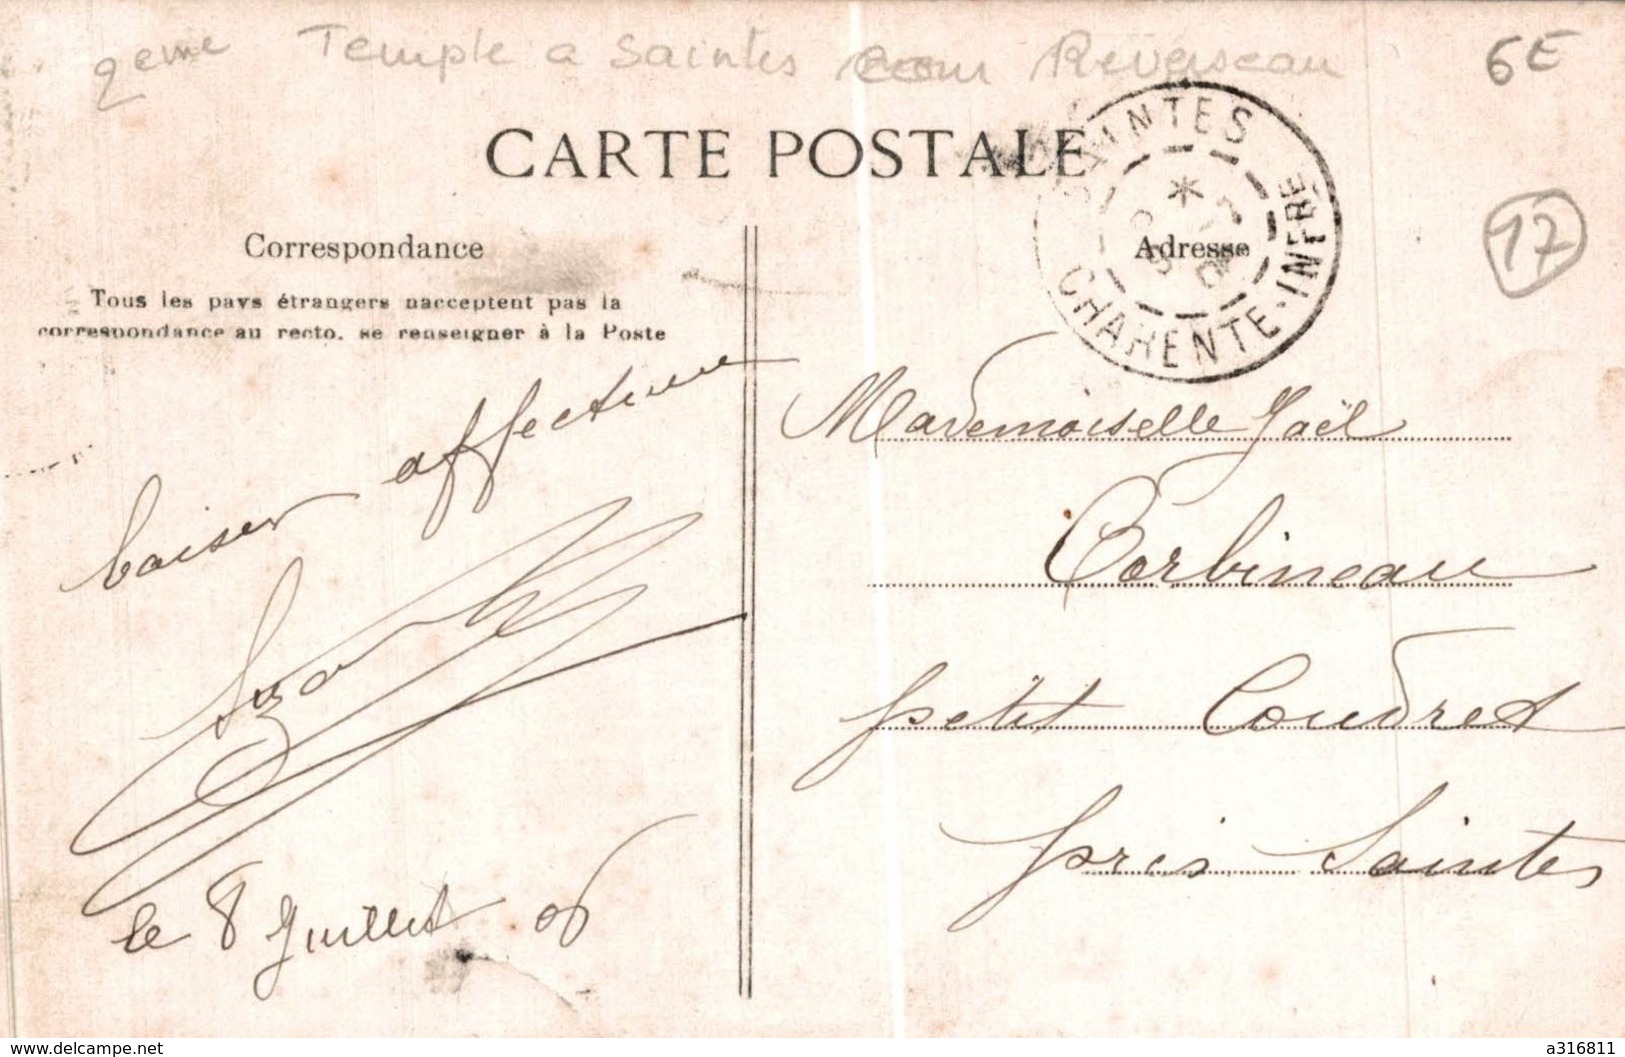 2eme Temple a Saintes cour Reverseau
6E
CARTE POSTALE
SAINTES
CHARENTE-INFRE
17
Correspondance
Adresse
Tous les pays étrangers nacceptent pas la
correspondance au recto, se renseigner à la Poste
baiser affectueux
Mademoiselle Gaël
Corbineau
petit Coudret
près Saintes
Suzanne
le 8 Juillet 06
www.delcampe.net
a316811